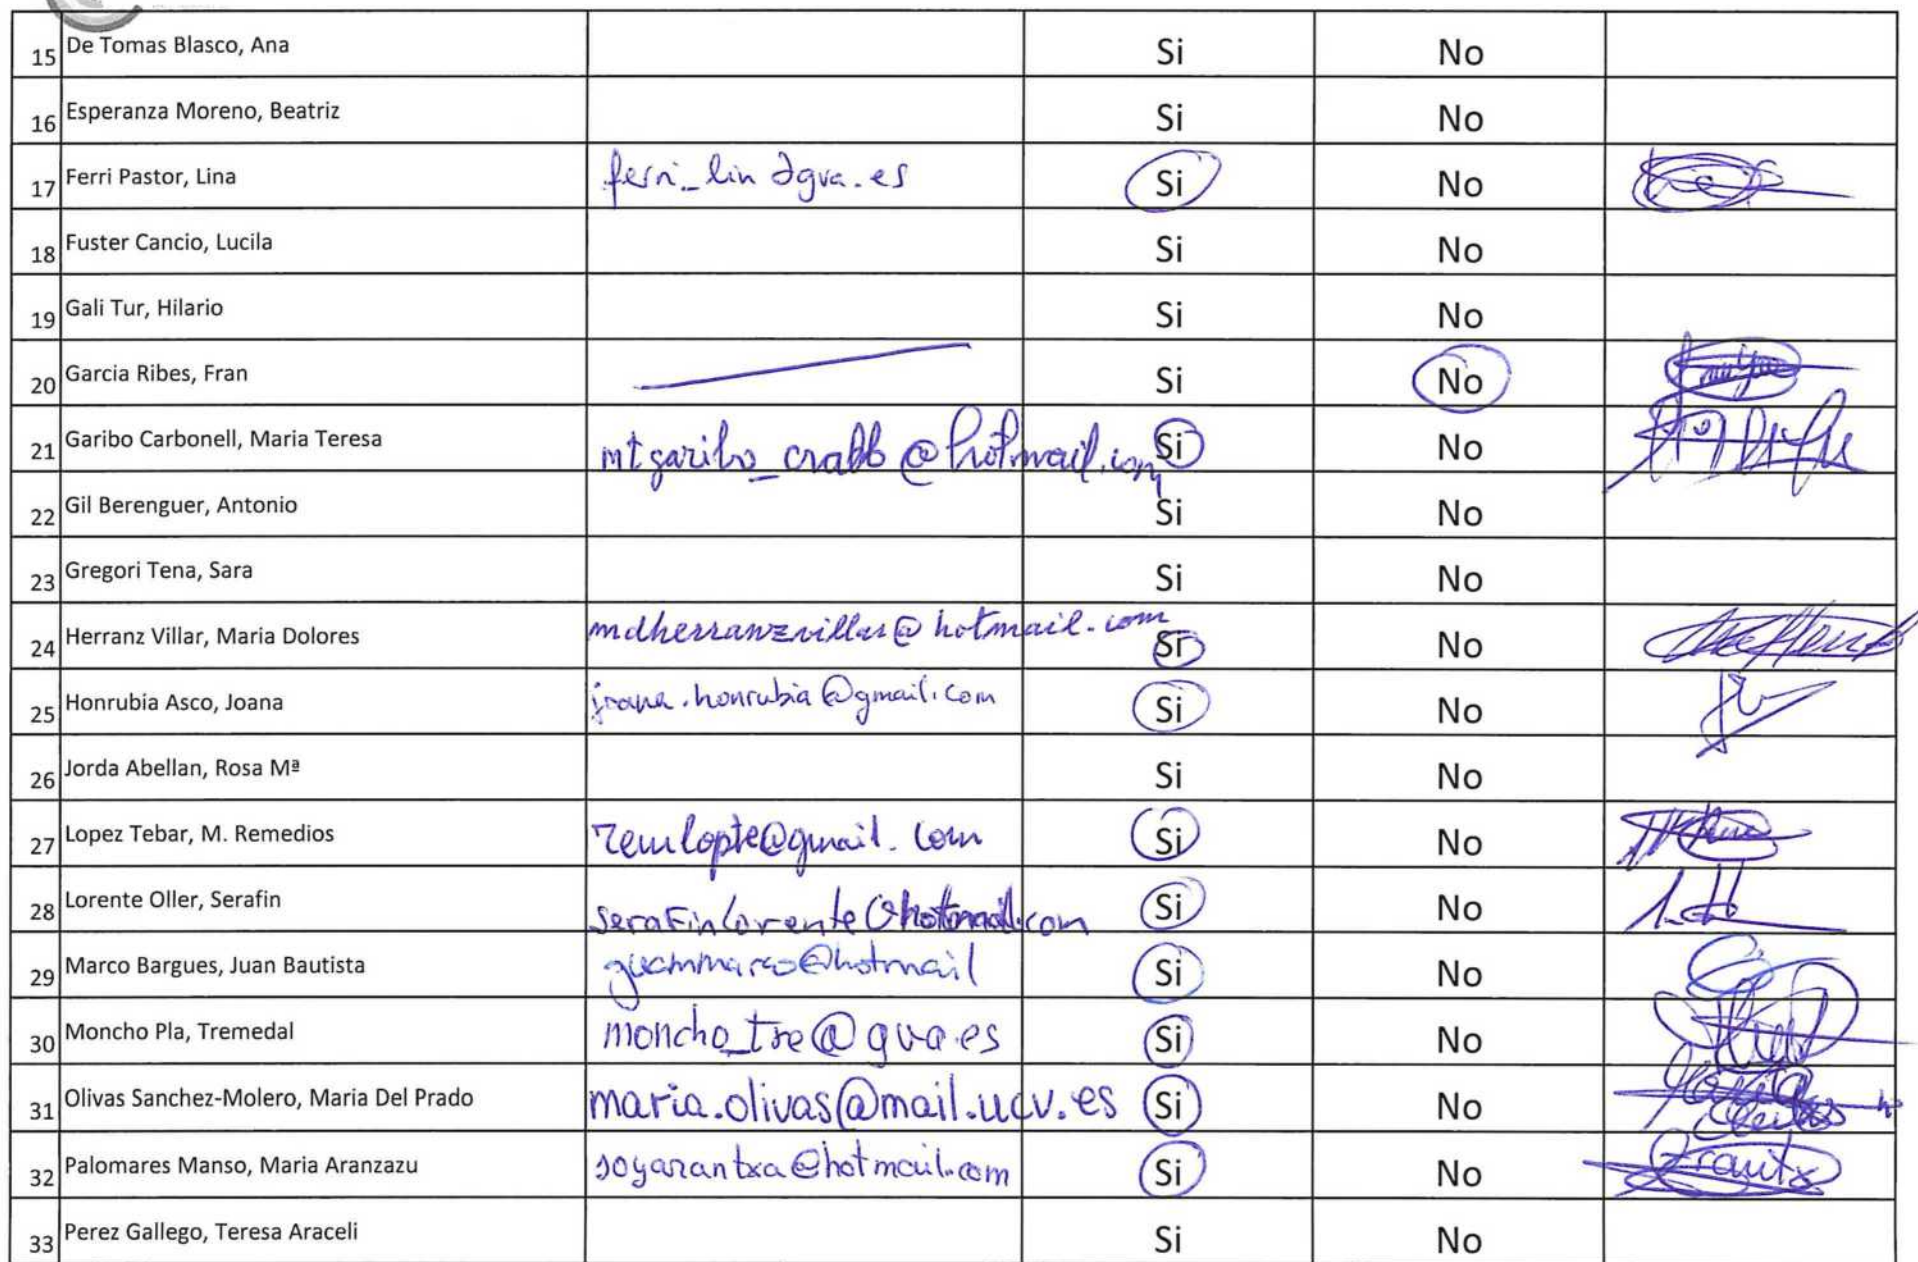 15 De Tomas Blasco, Ana Si No
16 Esperanza Moreno, Beatriz Si No
17 Ferri Pastor, Lina ferri_lin@gva.es Si No
18 Fuster Cancio, Lucila Si No
19 Gali Tur, Hilario Si No
20 Garcia Ribes, Fran Si No
21 Garibo Carbonell, Maria Teresa mtgaribo_crabb@hotmail.com Si No
22 Gil Berenguer, Antonio Si No
23 Gregori Tena, Sara Si No
24 Herranz Villar, Maria Dolores mdherranzvillar@hotmail.com Si No
25 Honrubia Asco, Joana joana.honrubia@gmail.com Si No
26 Jorda Abellan, Rosa Mª Si No
27 Lopez Tebar, M. Remedios remilopte@gmail.com Si No
28 Lorente Oller, Serafin serafinlorente@hotmail.com Si No
29 Marco Bargues, Juan Bautista Si No
30 Moncho Pla, Tremedal moncho_tre@gva.es Si No
31 Olivas Sanchez-Molero, Maria Del Prado maria.olivas@mail.ucv.es Si No
32 Palomares Manso, Maria Aranzazu soyarantxa@hotmail.com Si No
33 Perez Gallego, Teresa Araceli Si No